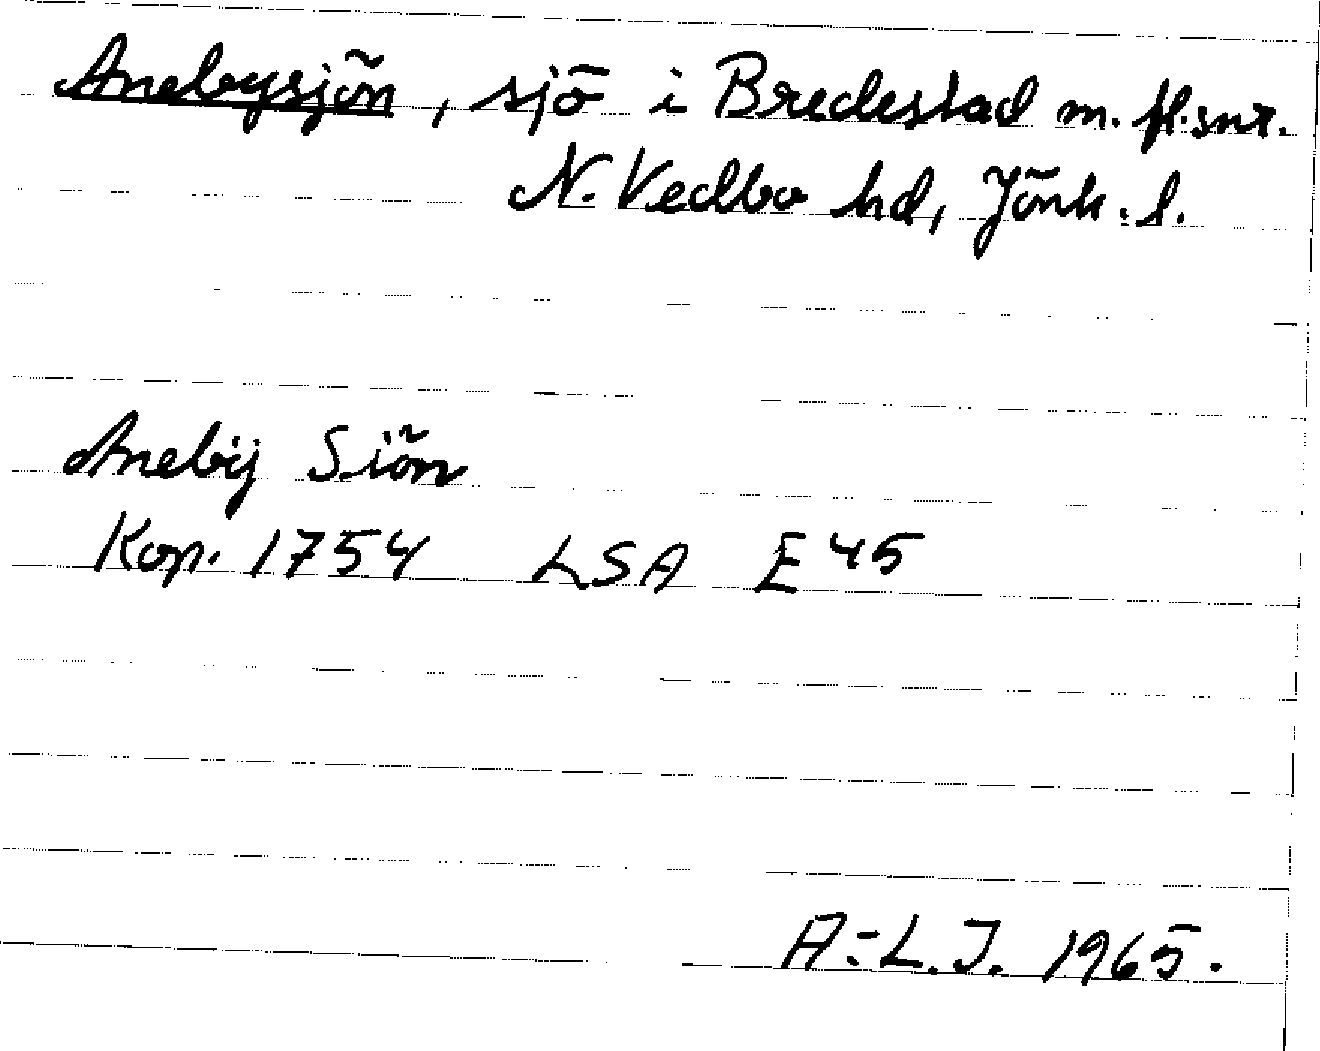 Anebysjön, sjö i Bredestad m. fl. snr.
N. Vedbo hd, Jönk. l.
Anebÿ Siön
Kop. 1754 LSA E45
A-L.J. 1965.